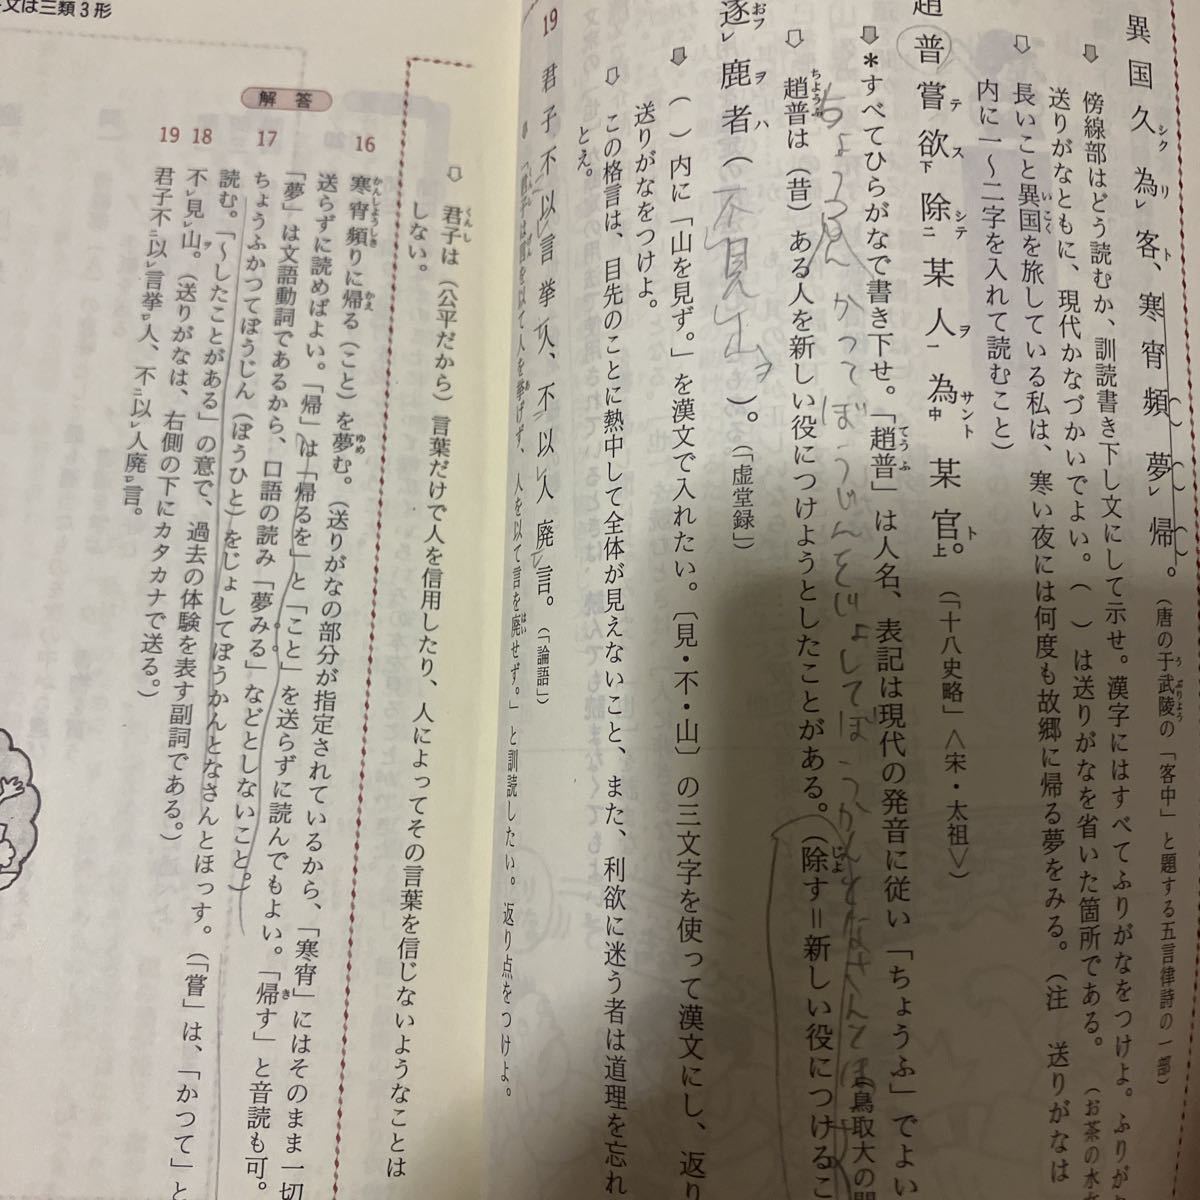 異国久シク為リレ客ト、寒宵頻夢レ帰。（唐の于武陵うぶりようの「客中」と題する五言律詩の一部）
傍線部はどう読むか、訓読書き下し文にして示せ。漢字にはすべてふりがなをつけよ。ふりが
送りがなともに、現代かなづかいでよい。（ ）は送りがなを省いた箇所である。（お茶の水
長いこと異国いこくを旅している私は、寒い夜には何度も故郷に帰る夢をみる。（注 送りがなは
内に一〜二字を入れて読むこと）
趙普嘗テ欲ス下除シテ二某人ヲ一為サント中某官ト上。（「十八史略」〈宋・太祖〉）
＊すべてひらがなで書き下せ。「趙普てうふ」は人名、表記は現代の発音に従い「ちょうふ」でよい
（鳥取大の
ちょうふかつてぼうじんをじょしてぼうかんとなさんとほ
趙普ちようふは（昔）ある人を新しい役につけようとしたことがある。（除じよす＝新しい役につけるこ
逐おフレ鹿ヲ者ハ（不レ見レ山ヲ）。（「虚堂録」）
（ ）内に「山を見ず。」を漢文で入れたい。〔見・不・山〕の三文字を使って漢文にし、返り
送りがなをつけよ。
この格言は、目先のことに熱中して全体が見えないこと、また、利欲に迷う者は道理を忘れ
とえ。
19 君子不以言挙人、不以人廃言。（「論語」）
は言を以て人を挙あげず、人を以て言を廃はいせず。」と訓読したい。返り点をつけよ。
君子くんしは（公平だから）言葉だけで人を信用したり、人によってその言葉を信じないようなことは
しない。
文は三類3形
解答
16 寒宵頻かんしようしきりに帰かえる（こと）を夢ゆめむ。（送りがなの部分が指定されているから、「寒宵」にはそのまま一切
送らずに読めばよい。「帰」は「帰るを」と「こと」を送らずに読んでもよい。「帰きす」と音読も可。
「夢」は文語動詞であるから、口語の読み「夢みる」などとしないこと。）
17 ちょうふかつてぼうじん（ぼうひと）をじょしてぼうかんとなさんとほっす。（「嘗」は、「かつて」と
読む。「〜したことがある」の意で、過去の体験を表す副詞である。）
18 不レ見レ山ヲ。（送りがなは、右側の下にカタカナで送る。）
19 君子不二以レ言挙一レ人、不二以レ人廃一レ言。